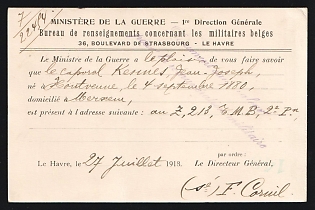 MINISTÈRE DE LA GUERRE — 1re Direction Générale
Bureau de renseignements concernant les militaires belges
36, BOULEVARD DE STRASBOURG - LE HAVRE
Le Ministre de la Guerre a le plaisir de vous faire savoir
que le caporal Kennes, Jean-Joseph,
né à Houtvenne, le 4 septembre 1880,
domicilié à
est présent à l'adresse suivante : au Z, 213, E.M.B, 2e Pn
Le Havre, le 27 Juillet 1918.
par ordre :
Le Directeur Général,
(sé) F. Cornil